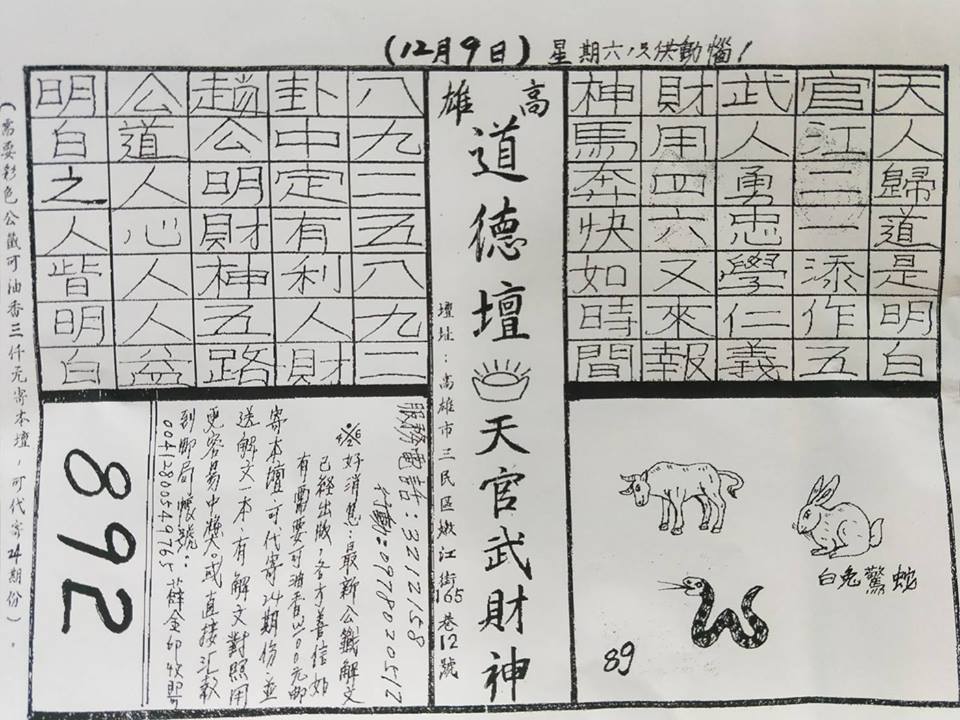 (12月9日) 星期六,只供動惱!
天人歸道是明白
官江二一添作五
武人勇忠學仁義
財用四六又來報
神馬奔快如時間
高雄
道德壇天官武財神
壇址:高雄市三民區嫩江街165巷12號
八九二五八九二
卦中定有利人財
趙公明財神五路
公道人心人人益
明白之人皆明白
白兔驚蛇
89
服務電話:3212158
行動:0978020517
※好消息:最新公籤解文
已經出版,各方善信如
有需要可油香三00元郵
寄本壇可代寄24期份並
送解文一本,有解文對照用
更容易中獎。或直接汇款
到郵局帳號:
00412800549765 蘇金印收
892
(需要彩色公籤可油香三仟元寄本壇,可代寄24期份)。